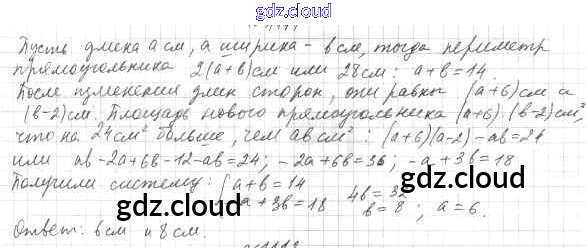 gdz.cloud
Пусть длина a см, а ширина - b см, тогда периметр
прямоугольника 2(a+b)см или 28см: a+b=14.
После изменения длин сторон, они равны (a+6)см и
(b-2)см. Площадь нового прямоугольника (a+6)·(b-2)см,
что на 24см² больше, чем ab см²: (a+6)(a-2)-ab=24
или ab-2a+6b-12-ab=24; -2a+6b=36; -a+3b=18
Получили систему: { a+b=14 4b=32
a+3b=18 b=8; a=6.
Ответ: 6см и 8см.
gdz.cloud gdz.cloud
gdz.cloud